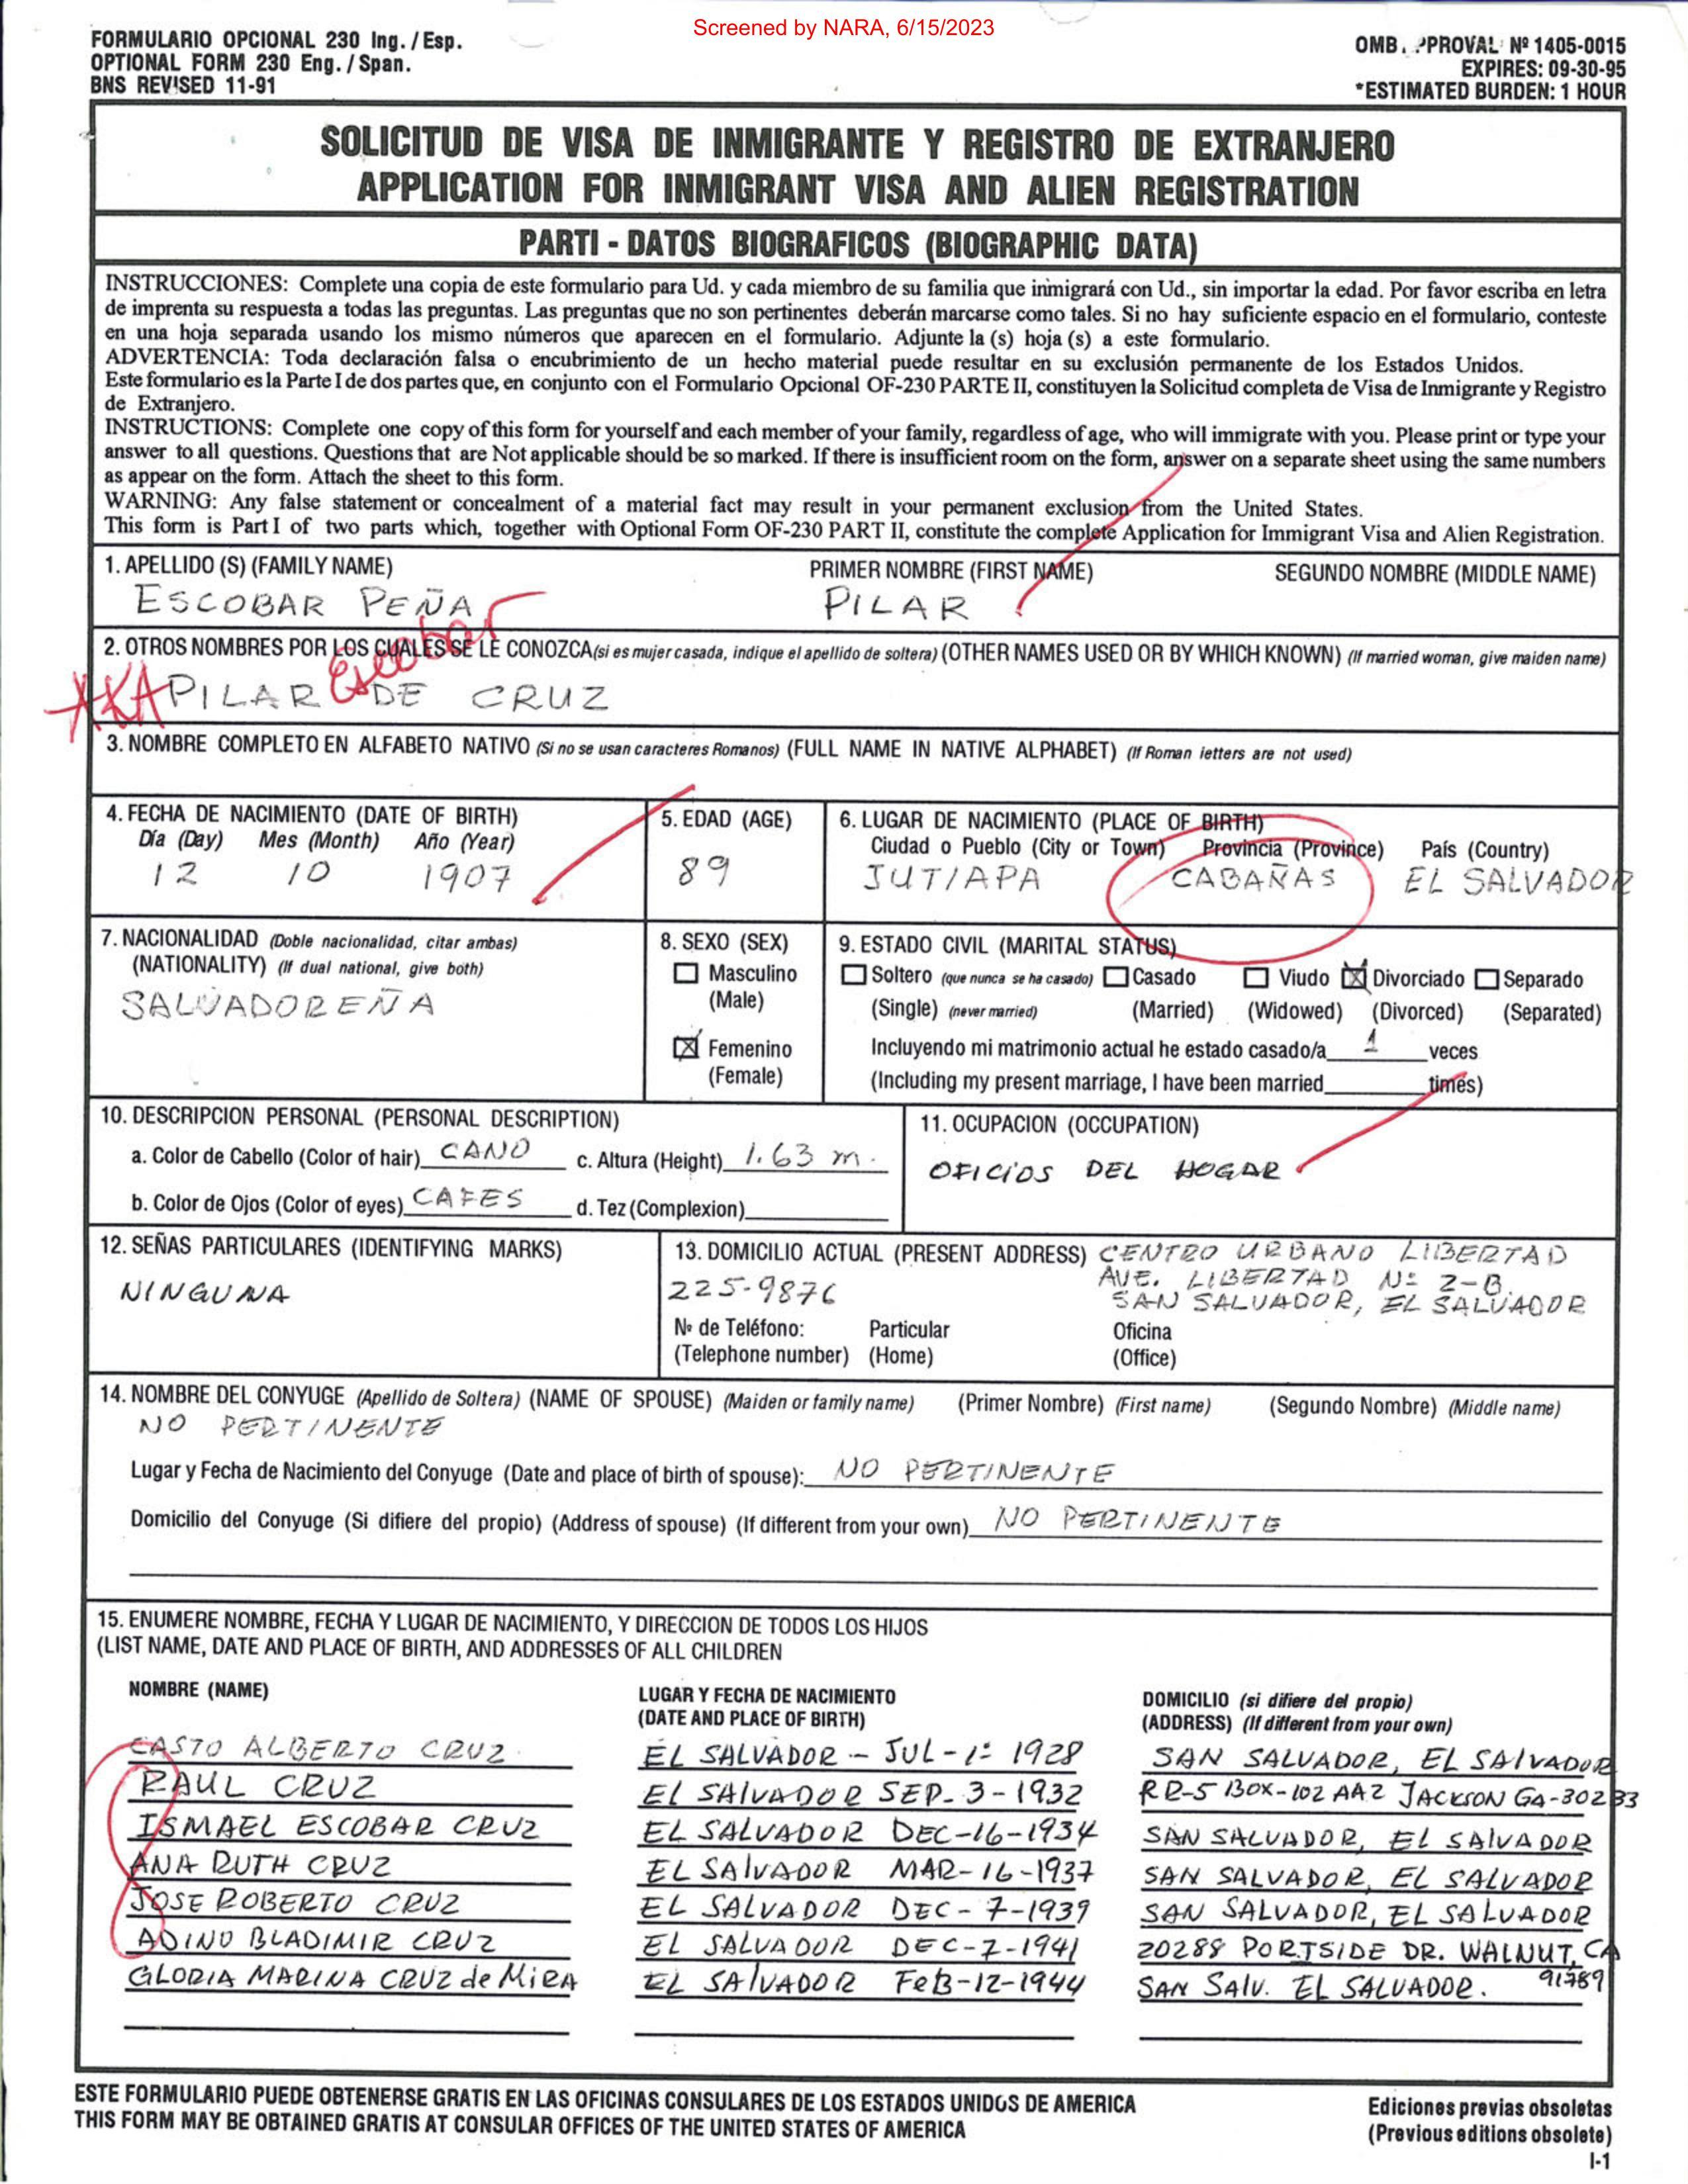 Screened by NARA, 6/15/2023
FORMULARIO OPCIONAL 230 Ing. / Esp.
OPTIONAL FORM 230 Eng. / Span.
BNS REVISED 11-91
OMB. PPROVAL Nº 1405-0015
EXPIRES: 09-30-95
*ESTIMATED BURDEN: 1 HOUR
SOLICITUD DE VISA DE INMIGRANTE Y REGISTRO DE EXTRANJERO
APPLICATION FOR INMIGRANT VISA AND ALIEN REGISTRATION
PARTI - DATOS BIOGRAFICOS (BIOGRAPHIC DATA)
INSTRUCCIONES: Complete una copia de este formulario para Ud. y cada miembro de su familia que inmigrará con Ud., sin importar la edad. Por favor escriba en letra
de imprenta su respuesta a todas las preguntas. Las preguntas que no son pertinentes deberán marcarse como tales. Si no hay suficiente espacio en el formulario, conteste
en una hoja separada usando los mismo números que aparecen en el formulario. Adjunte la (s) hoja (s) a este formulario.
ADVERTENCIA: Toda declaración falsa o encubrimiento de un hecho material puede resultar en su exclusión permanente de los Estados Unidos.
Este formulario es la Parte I de dos partes que, en conjunto con el Formulario Opcional OF-230 PARTE II, constituyen la Solicitud completa de Visa de Inmigrante y Registro
de Extranjero.
INSTRUCTIONS: Complete one copy of this form for yourself and each member of your family, regardless of age, who will immigrate with you. Please print or type your
answer to all questions. Questions that are Not applicable should be so marked. If there is insufficient room on the form, answer on a separate sheet using the same numbers
as appear on the form. Attach the sheet to this form.
WARNING: Any false statement or concealment of a material fact may result in your permanent exclusion from the United States.
This form is Part I of two parts which, together with Optional Form OF-230 PART II, constitute the complete Application for Immigrant Visa and Alien Registration.
1. APELLIDO (S) (FAMILY NAME) PRIMER NOMBRE (FIRST NAME) SEGUNDO NOMBRE (MIDDLE NAME)
ESCOBAR PEÑA PILAR
2. OTROS NOMBRES POR LOS CUALES SE LE CONOZCA (si es mujer casada, indique el apellido de soltera) (OTHER NAMES USED OR BY WHICH KNOWN) (If married woman, give maiden name)
AKA PILAR Escobar DE CRUZ
3. NOMBRE COMPLETO EN ALFABETO NATIVO (Si no se usan caracteres Romanos) (FULL NAME IN NATIVE ALPHABET) (If Roman letters are not used)
4. FECHA DE NACIMIENTO (DATE OF BIRTH)
Día (Day) Mes (Month) Año (Year)
12 10 1907
5. EDAD (AGE)
89
6. LUGAR DE NACIMIENTO (PLACE OF BIRTH)
Ciudad o Pueblo (City or Town) Provincia (Province) País (Country)
JUTIAPA CABAÑAS EL SALVADOR
7. NACIONALIDAD (Doble nacionalidad, citar ambas)
(NATIONALITY) (If dual national, give both)
SALVADOREÑA
8. SEXO (SEX)
Masculino
(Male)
Femenino
(Female)
9. ESTADO CIVIL (MARITAL STATUS)
Soltero (que nunca se ha casado) Casado Viudo Divorciado Separado
(Single) (never married) (Married) (Widowed) (Divorced) (Separated)
Incluyendo mi matrimonio actual he estado casado/a 1 veces
(Including my present marriage, I have been married times)
10. DESCRIPCION PERSONAL (PERSONAL DESCRIPTION)
a. Color de Cabello (Color of hair) CANO c. Altura (Height) 1.63 m.
b. Color de Ojos (Color of eyes) CAFES d. Tez (Complexion)
11. OCUPACION (OCCUPATION)
OFICIOS DEL HOGAR
12. SEÑAS PARTICULARES (IDENTIFYING MARKS)
NINGUNA
13. DOMICILIO ACTUAL (PRESENT ADDRESS) CENTRO URBANO LIBERTAD
AVE. LIBERTAD Nº 2-B.
225-9876 SAN SALVADOR, EL SALVADOR
Nº de Teléfono: Particular Oficina
(Telephone number) (Home) (Office)
14. NOMBRE DEL CONYUGE (Apellido de Soltera) (NAME OF SPOUSE) (Maiden or family name) (Primer Nombre) (First name) (Segundo Nombre) (Middle name)
NO PERTINENTE
Lugar y Fecha de Nacimiento del Conyuge (Date and place of birth of spouse): NO PERTINENTE
Domicilio del Conyuge (Si difiere del propio) (Address of spouse) (If different from your own) NO PERTINENTE
15. ENUMERE NOMBRE, FECHA Y LUGAR DE NACIMIENTO, Y DIRECCION DE TODOS LOS HIJOS
(LIST NAME, DATE AND PLACE OF BIRTH, AND ADDRESSES OF ALL CHILDREN
NOMBRE (NAME) LUGAR Y FECHA DE NACIMIENTO DOMICILIO (si difiere del propio)
(DATE AND PLACE OF BIRTH) (ADDRESS) (If different from your own)
CASTO ALBERTO CRUZ EL SALVADOR - JUL - 1º 1928 SAN SALVADOR, EL SALVADOR
RAUL CRUZ EL SALVADOR SEP. 3-1932 RR-5 BOX-102 AA2 JACKSON GA-30233
ISMAEL ESCOBAR CRUZ EL SALVADOR DEC-16-1934 SAN SALVADOR, EL SALVADOR
ANA RUTH CRUZ EL SALVADOR MAR-16-1937 SAN SALVADOR, EL SALVADOR
JOSE ROBERTO CRUZ EL SALVADOR DEC-7-1939 SAN SALVADOR, EL SALVADOR
ADINO BLADIMIR CRUZ EL SALVADOR DEC-7-1941 20288 PORTSIDE DR. WALNUT, CA
91789
GLORIA MARINA CRUZ de MIRA EL SALVADOR FEB-12-1944 SAN SALV. EL SALVADOR.
ESTE FORMULARIO PUEDE OBTENERSE GRATIS EN LAS OFICINAS CONSULARES DE LOS ESTADOS UNIDOS DE AMERICA
THIS FORM MAY BE OBTAINED GRATIS AT CONSULAR OFFICES OF THE UNITED STATES OF AMERICA
Ediciones previas obsoletas
(Previous editions obsolete)
I-1